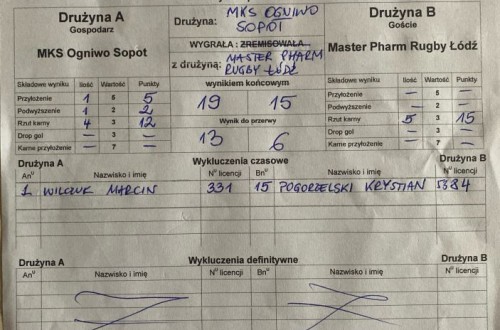 Drużyna A
Gospodarz
MKS Ogniwo Sopot
Drużyna: MKS OGNIWO
SOPOT
WYGRAŁA: ZREMISOWAŁA
z drużyną: MASTER PHARM
RUGBY ŁÓDŹ
Drużyna B
Goście
Master Pharm Rugby Łódź
Składowe wyniku Ilość Wartość Punkty
Przyłożenie 1 5 5
Podwyższenie 1 2 2
Rzut karny 4 3 12
Drop gol — 3 —
Karne przyłożenie — 7 —
wynikiem końcowym
19 15
Wynik do przerwy
13 6
Składowe wyniku Ilość Wartość Punkty
Przyłożenie — 5 —
Podwyższenie — 2 —
Rzut karny 5 3 15
Drop gol — 3 —
Karne przyłożenie — 7 —
Drużyna A Wykluczenia czasowe Drużyna B
Aᴺᵁ Nazwisko i imię Nᵁ licencji Bᴺᵁ Nazwisko i imię Nᵁ licencji
1 WILCZUK MARCIN 331 15 POGORZELSKI KRYSTIAN 5584
Drużyna A Wykluczenia definitywne Drużyna B
Aᴺᵁ Nazwisko i imię Nᵁ licencji Bᴺᵁ Nazwisko i imię Nᵁ licencji